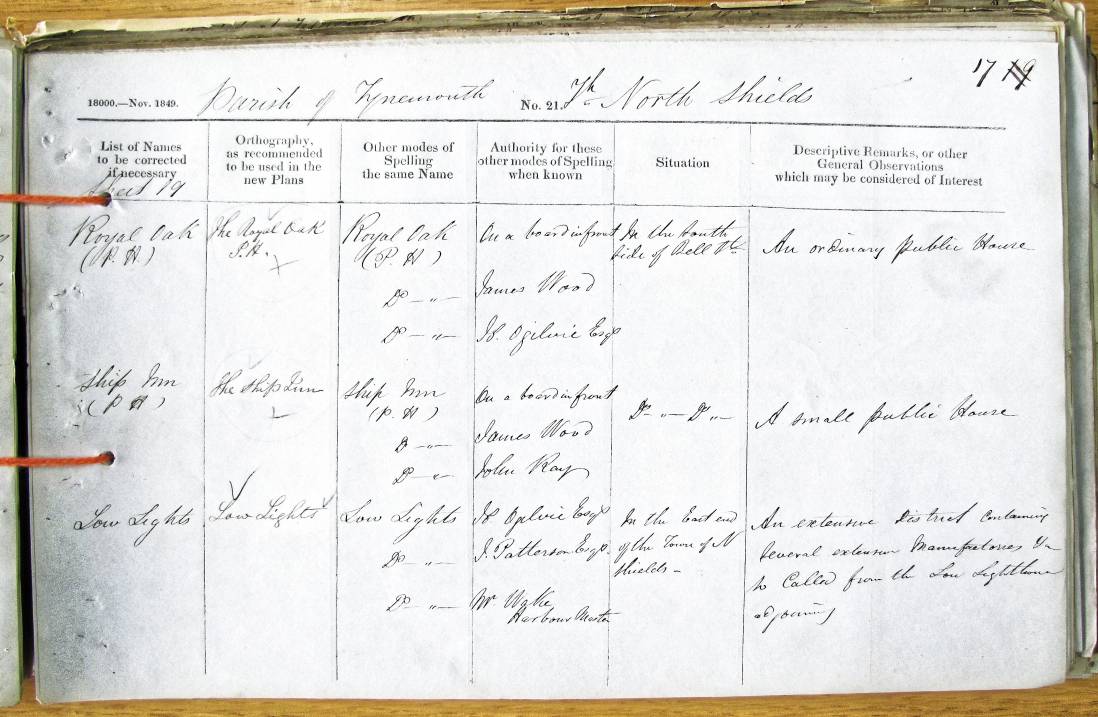 17 19
18000.—Nov. 1849. Parish of Tynemouth No. 21. Th North Shields
List of Names to be corrected if necessary
Orthography, as recommended to be used in the new Plans
Other modes of Spelling the same Name
Authority for these other modes of Spelling when known
Situation
Descriptive Remarks, or other General Observations which may be considered of Interest
Sheet 19
Royal Oak
(P. H)
The Royal Oak
P.H.
Royal Oak
(P. H)
On a board in front
In the South
side of Bell St
An ordinary Public House
Do — „ — James Wood
Do — „ — Js. Ogilvie Esqr
Ship Inn
(P H)
The Ship Inn
Ship Inn
(P. H)
On a board in front
Do — „ — Do — „ —
A small Public House
Do — „ — James Wood
Do — „ — John Kay
Low Lights
Low Lights
Low Lights
Js Ogilvie Esqr
In the East end
of the Town of N
Shields —
An extensive District containing
several extensive Manufactories
so Called from the Low Lighthouse
adjoining
Do — „ — J. Patterson Esqr.
Do — „ — Mr. Wake
Harbour Master